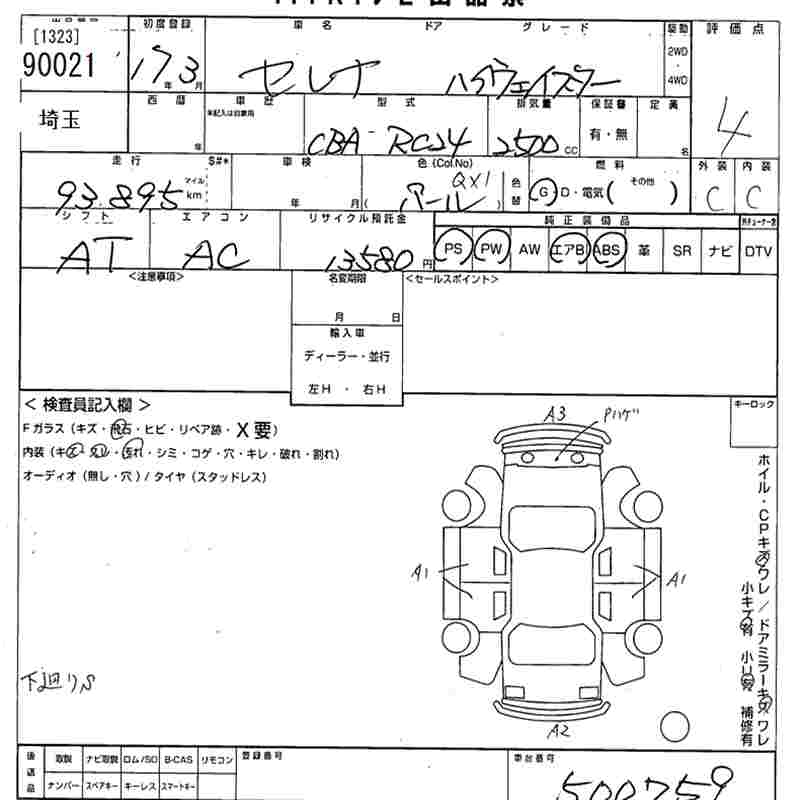 出品番号 初度登録 車名 ドア グレード 駆動 評価点
[1323]
90021 17年3月 セレナ ハイウェイスター 2WD・4WD 4
西暦 車歴 型式 排気量 保証書 定員
埼玉 年 未記入は自家用 CBA-RC24 2500CC 有・無 名
走行 S#* 車検 色(Col No) 燃料 外装 内装
93,895 マイル km 年 月 (パール QX1) 色替 G・D・電気(その他) C C
シフト エアコン リサイクル預託金 純正装備品
AT AC 13580円 PS PW AW エアB ABS 革 SR ナビ DTV
<注意事項> 名変期限 <セールスポイント>
月 日
輸入車
ディーラー・並行
左H・右H
<検査員記入欄> キーロック
Fガラス(キズ・飛石・ヒビ・リペア跡・X要)
内装(キズ・スレ・汚れ・シミ・コゲ・穴・キレ・破れ・割れ)
オーディオ(無し・穴)/タイヤ(スタッドレス)
A3 Pハゲ
A1 A1
A2
ホイル・CPキズワレ/ドアミラーキズワレ
小キズ有 小凹有 補修有
下廻りS
後送品 取説 ナビ取説 ロム/SO B-CAS リモコン 登録番号 車台番号
ナンバー スペアキー キーレス スマートキー 500759